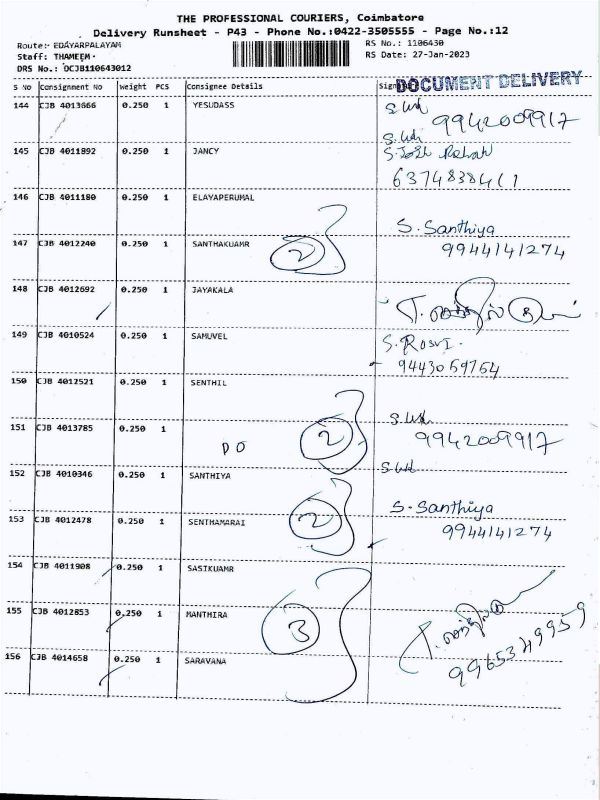 THE PROFESSIONAL COURIERS, Coimbatore
Delivery Runsheet - P43 - Phone No.:0422-3505555 - Page No.:12
Route:- EDAYARPALAYAM
RS No.: 1106430
Staff: THAMEEM-
RS Date: 27-Jan-2023
DRS No.: DCJB110643012
S No Consignment No Weight PCS Consignee Details
DOCUMENT DELIVERY
144 CJB 4013666 0.250 1 YESUDASS
9942009917
145 CJB 4011892 0.250 1 JANCY
6374838411
146 CJB 4011180 0.250 1 ELAYAPERUMAL
S. Santhiya
147 CJB 4012240 0.250 1 SANTHAKUAMR 2 9944141274
148 CJB 4012692 0.250 1 JAYAKALA
149 CJB 4010524 0.250 1 SAMUVEL
9443059764
150 CJB 4012521 0.250 1 SENTHIL
151 CJB 4013785 0.250 1
DO 2 9942009917
152 CJB 4010346 0.250 1 SANTHIYA
S. Santhiya
153 CJB 4012478 0.250 1 SENTHAMARAI 2 9944141274
154 CJB 4011908 0.250 1 SASIKUAMR
155 CJB 4012853 0.250 1 MANTHIRA 3
9965349959
156 CJB 4014658 0.250 1 SARAVANA